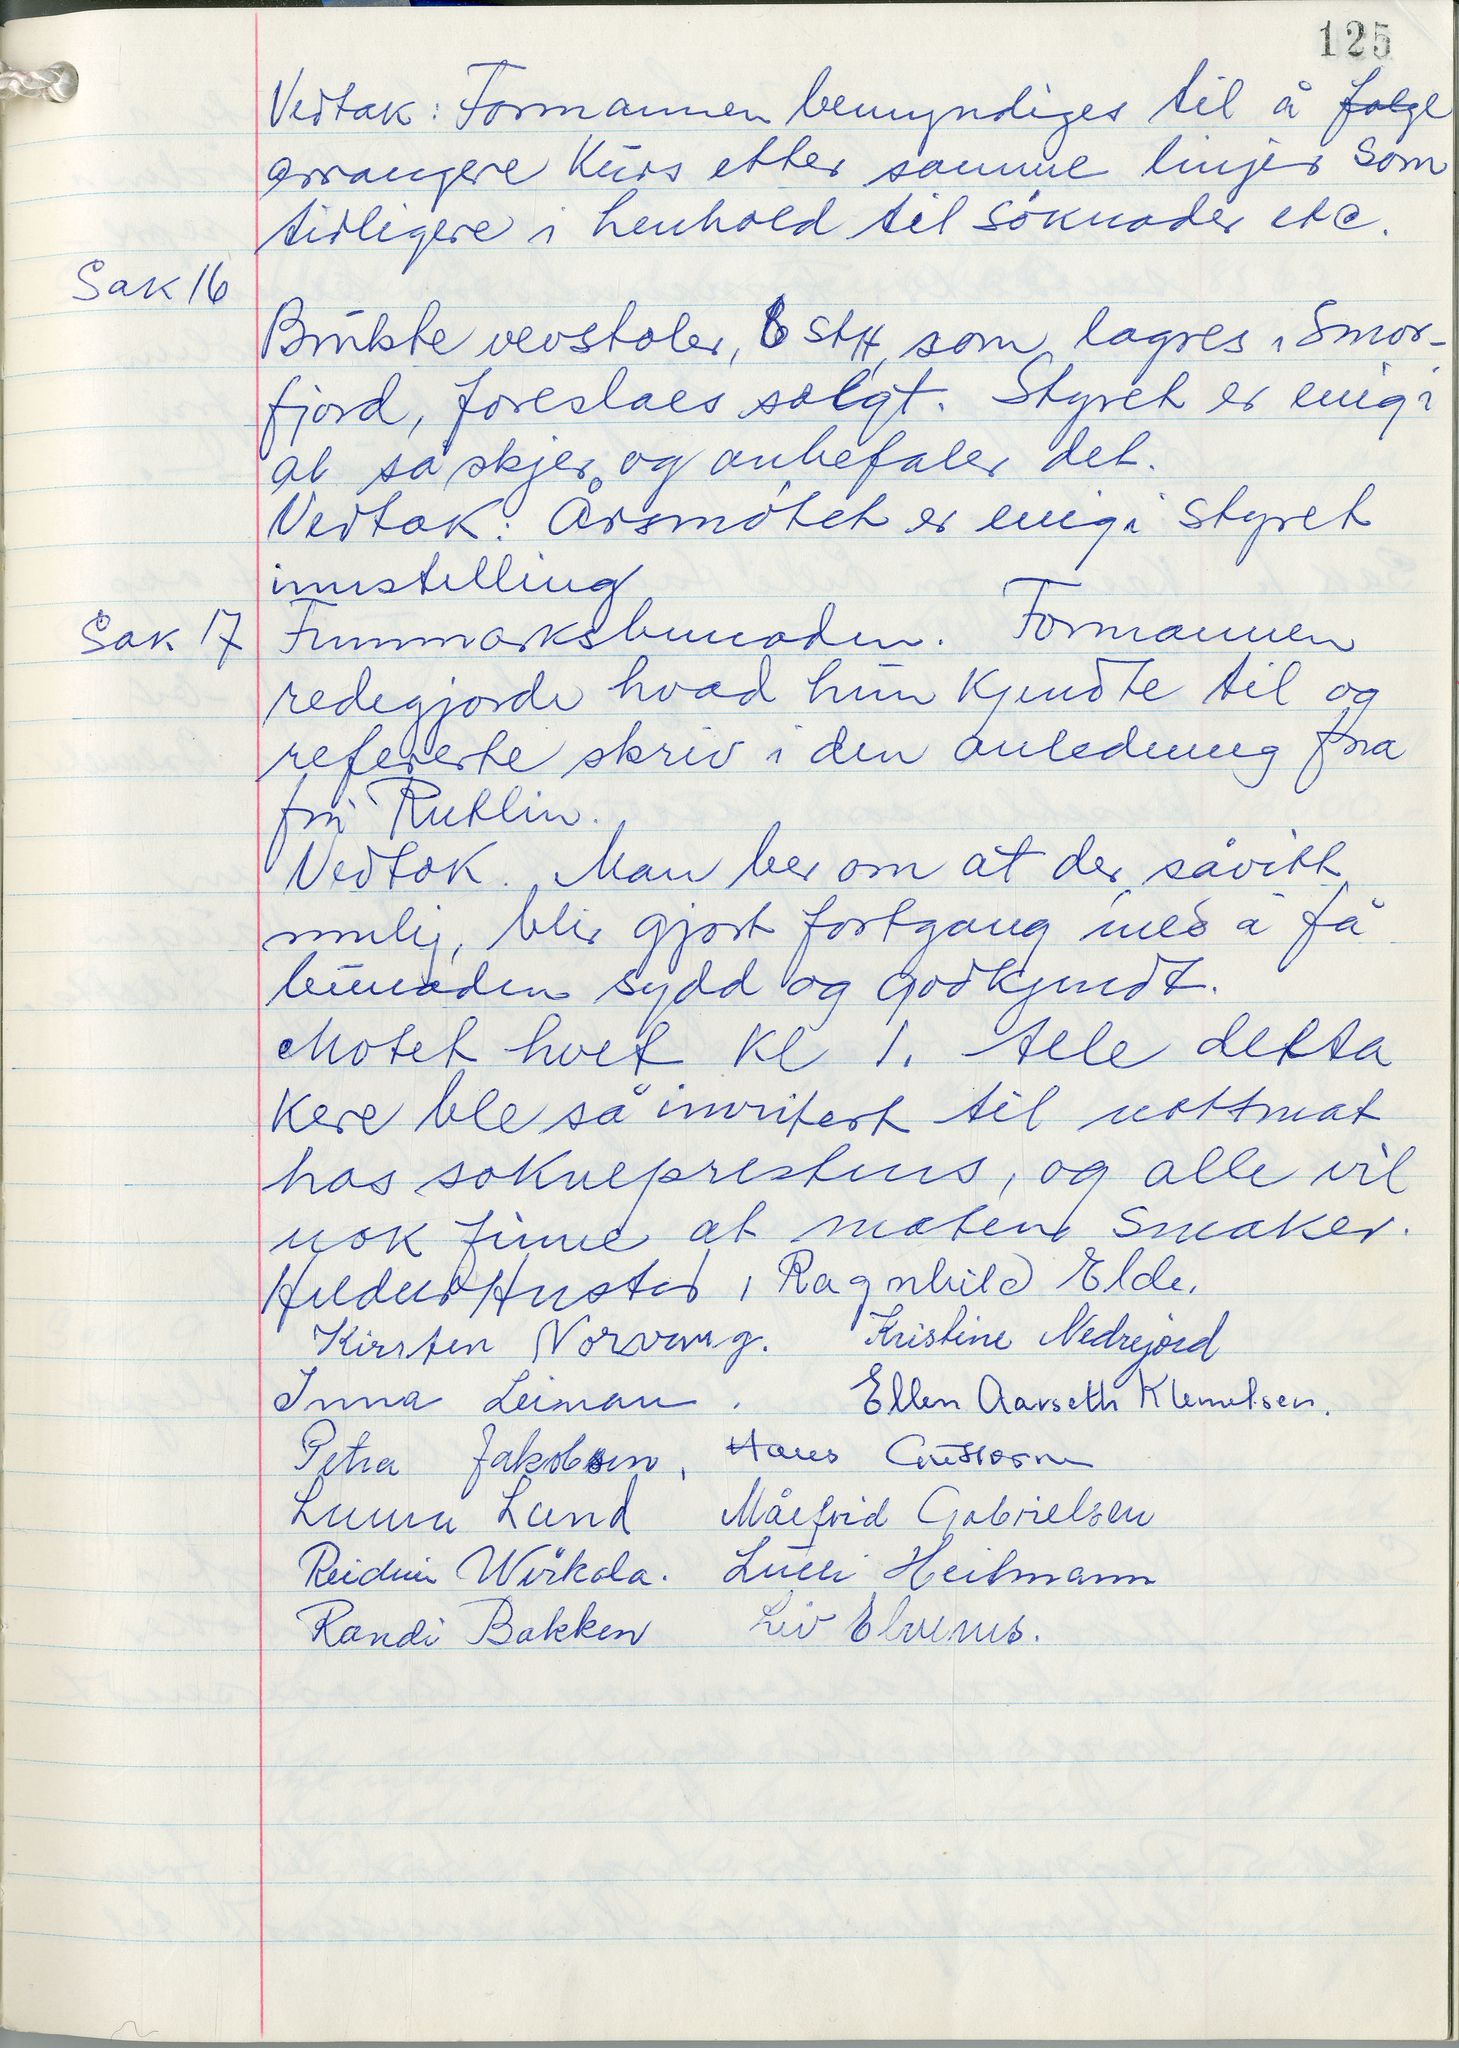 125
Vedtak: Formannen bemyndiges til å følge
arrangere kurs etter samme linjer som
tidligere i henhold til söknader etc.
Sak 16
Brukte vevstoler, 6 stk, som lagres i Smor-
fjord, foreslaes solgt. Styret er enig i
at så skjer, og anbefaler det.
Vedtak: Årsmötet er enig i styret
innstilling
Sak 17 Finnmarksbunaden. Formannen
redegjorde hvad hun kjendte til og
refererte skriv i den anledning fra
frü Rutlin.
Vedtak. Man ber om at der, såvitt
mulig, blir gjort fortgang med å få
bunaden sydd og godkjendt.
Motet hvet kl 1. Alle delta
kere ble så invitert til nattmat
hos sokneprestens, og alle vil
nok finne at maten smaker.
Ragnhild Elde.
Kirsten Norvang. Kristine Nedrejord
Inna Leiman. Ellen Aarseth Klemetsen.
Petra Jakobsen, Hans
Lund Målfrid Gabrielsen
Reidun Wirkola. Lulli Heitmann
Randi Bakken Liv Elvenes.